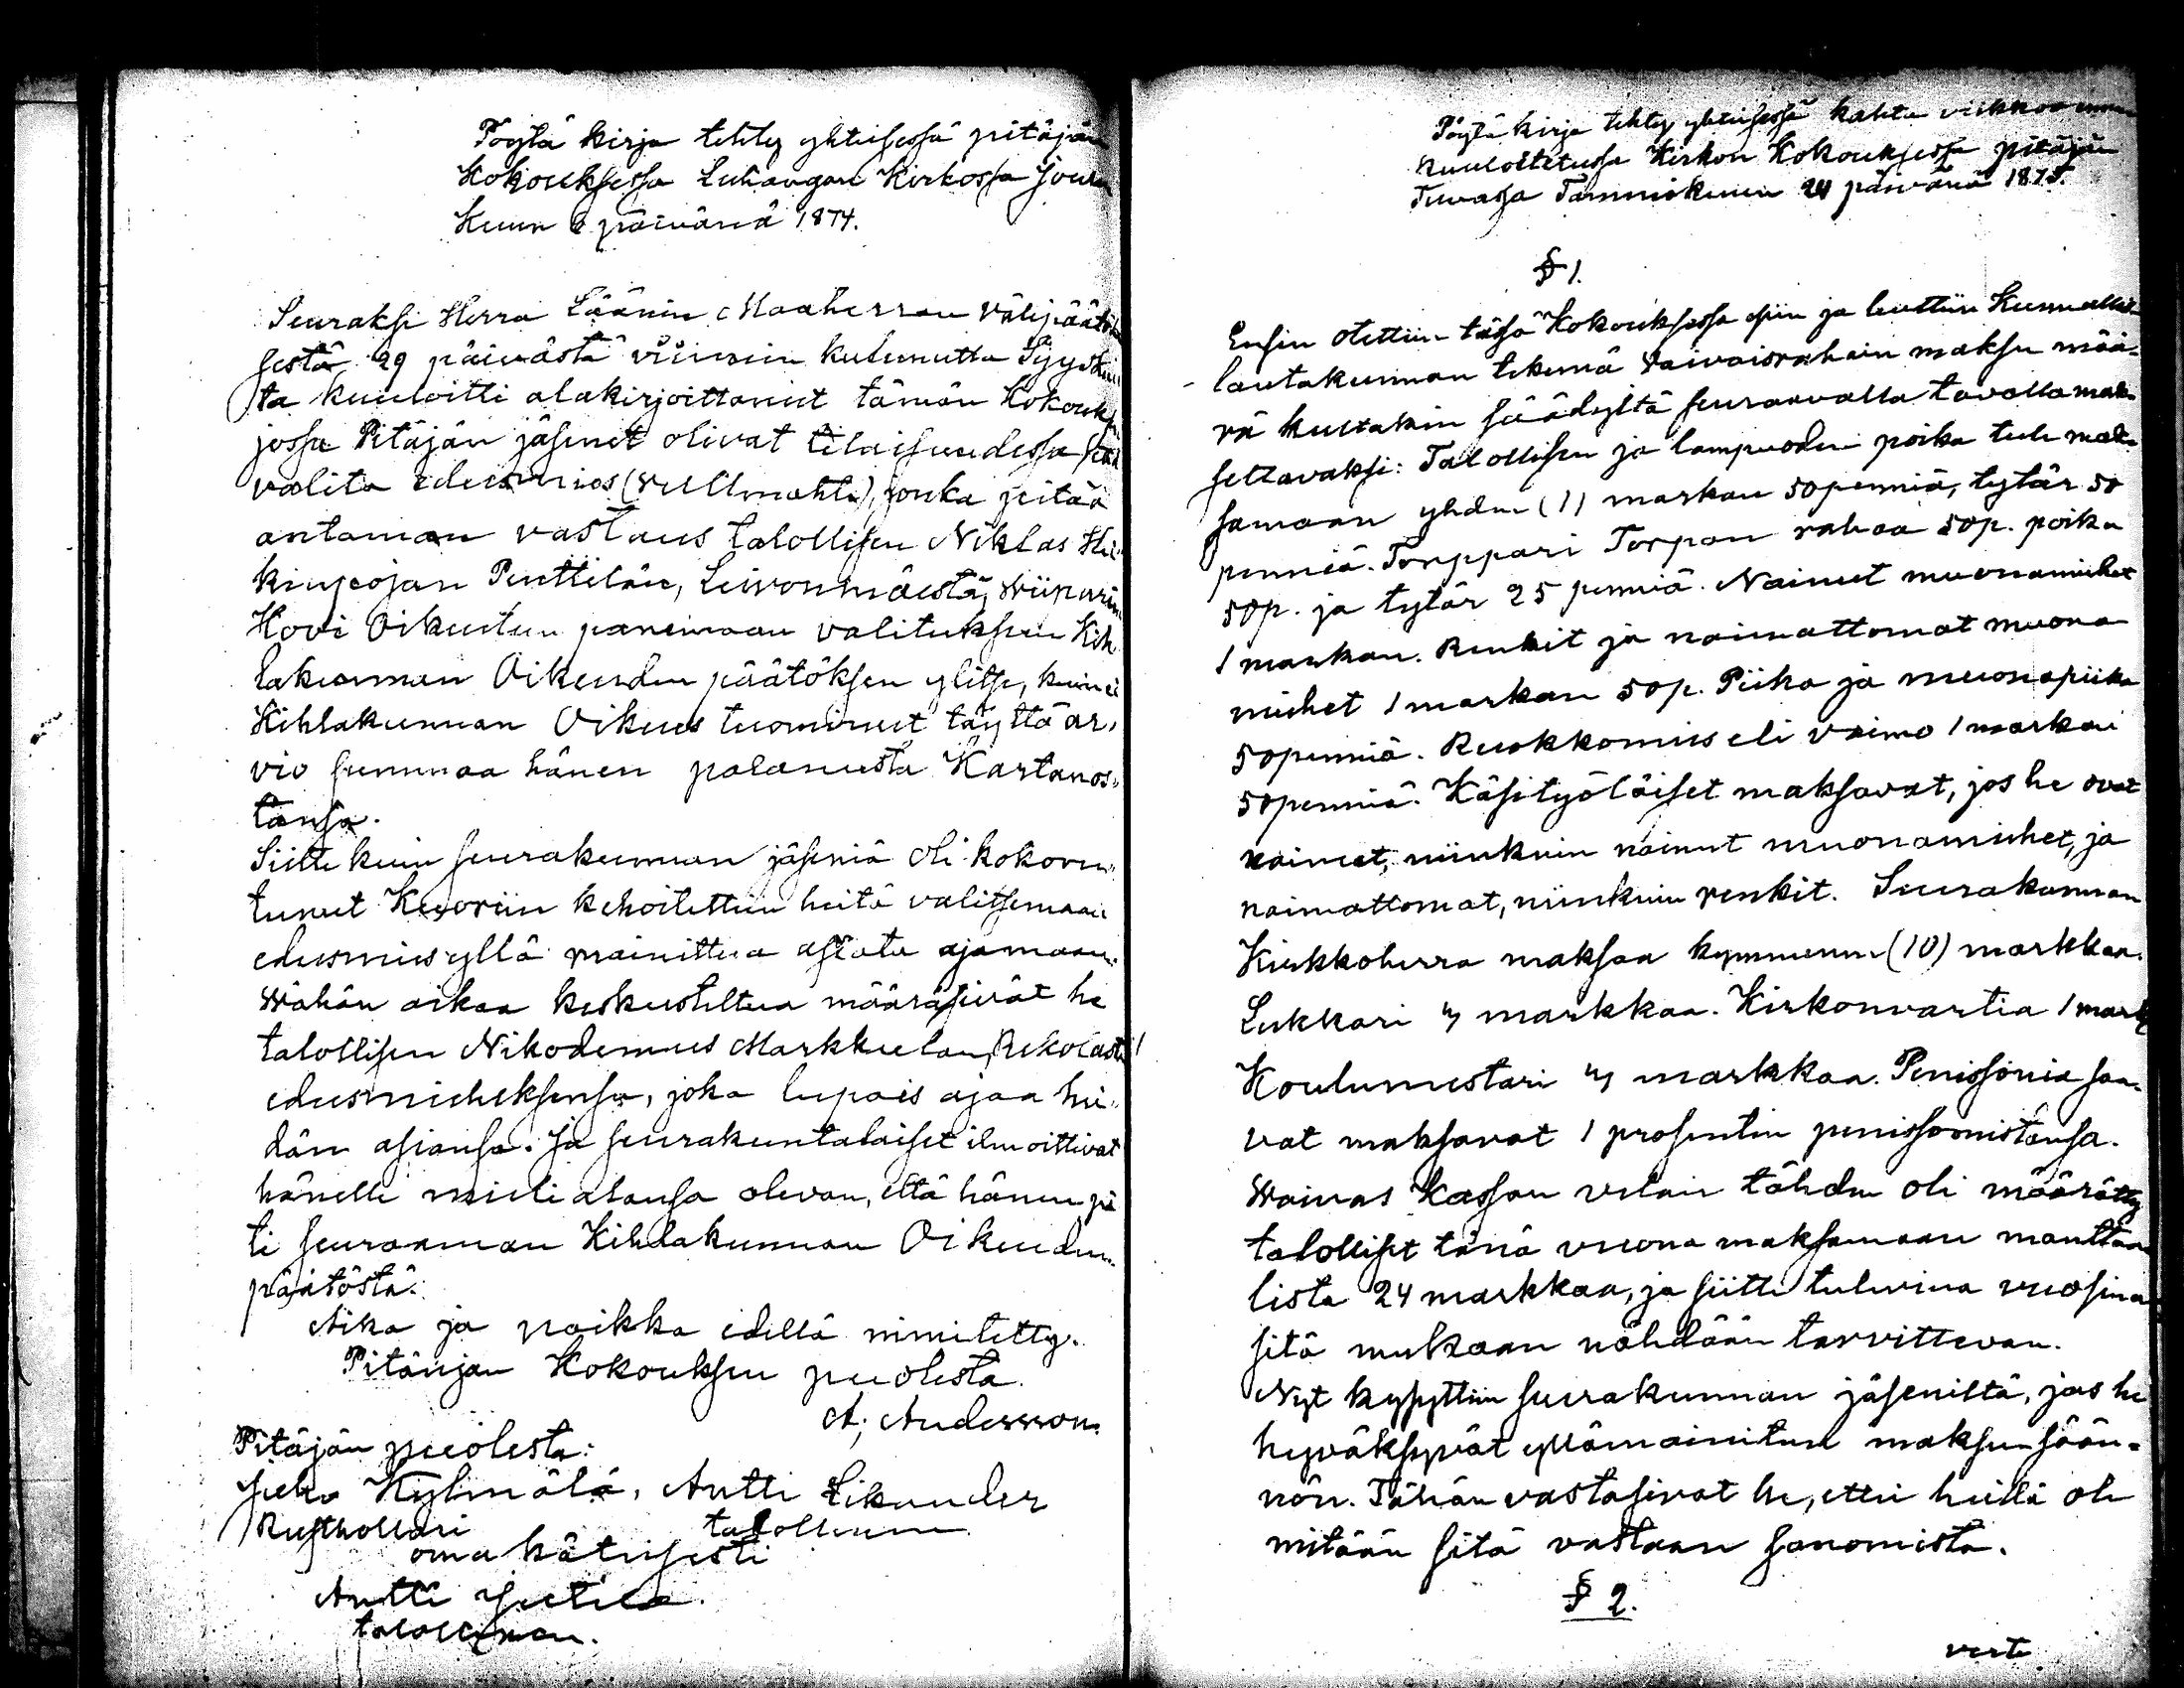 Pöytä kirja tehty yhteisessä pitäjän
Kokouksessa Luhangan Kirkossa Joulu
Kuun 6 päivänä 1874.
Seuraksi Herra Läänin Maaherran välipäätök
sestä 29 päivästä viimein kulunutta Syysku
ta kuuloitti alakirjoittanut tämän Kokouks
jossa Pitäjän jäsenet olivat tilaisuudessa
valita edusmies (vullmahti), jonka pitää
antaman vastaus talollisen Niklas Hei
kinpojan Penttilän, Leivonmäestä, Wiipurin
Hovi Oikeuteen panemaan valituksen Kih
lakunnan Oikeuden päätöksen ylitse, kun ei
Kihlakunnan Oikeus tuominnut täyttä ar-
vio summaa hänen palaneesta Kartanos-
tansa.
Siitte kuin seurakunnan jäseniä oli kokoon-
tunut Kuoriin kehoitettiin heitä valitsemaan
edusmies yllä mainittua asiata ajamaan.
Wähän aikaa keskusteltua määräsivät he
talollisen Nikodemus Markkulan, Rekolasta
edusmieheksensä, joka lupais ajaa hei-
dän asiansa. Ja seurakuntalaiset ilmoittivat
hänelle mielialansa olevan, että hänen pi
ti seuraaman Kihlakunnan Oikeuden
päätöstä.
Aika ja paikka edellä nimitetty.
Pitäjän Kokouksen puolesta.
A. Andersson.
Pitäjän puolesta:
Juho Kylmälä, Antti Likander
Rusthollari talollinen
oma kätisesti
Antti Jutila.
talollinen.
Pöytä kirja tehty yhteisessä kahta viikkoa ennen
kuuloitetussa Kirkon Kokouksessa pitäjän
Tuvassa Tammikuun 24 päivänä 1875.
§ 1.
Ensin otettiin tässä Kokouksessa esiin ja luettiin Kunnallis-
lautakunnan tekemä Vaivaisrahain maksu mää-
rä kustakin säädyltä seuraavalla tavalla mak-
settavaksi: Talollisen ja lampuodin poika tulee mak-
samaan yhden (1) markan 50 penniä, tytär 50
penniä. Torppari Torpan rahaa 50 p. poika
50 p. ja tytär 25 penniä. Nainut muonamiehet
1 markan. Renkit ja naimattomat muona
miehet 1 markan 50 p. Piika ja muonapiika
50 penniä. Ruokkomies eli vaimo 1 markan
50 penniä. Käsityöläiset maksavat, jos he ovat
naineet, niinkuin nainut muonamiehet, ja
naimattomat, niinkuin renkit. Seurakunnan
Kirkkoherra maksaa kymmenen (10) markkaa.
Lukkari 4 markkaa. Kirkonvartia 1 mark
Koulumestari 4 markkaa. Penissönia saa-
vat maksavat 1 prosentin penissoonistansa.
Waivas Kassan velan tähden oli määrätty
talolliset tänä vuona maksamaan manttaa
lista 24 markkaa, ja siitte tulevina vuosina
sitä mukaan nähdään tarvittevan.
Nyt kysyttiin seurakunnan jäseniltä, jos he
hyväksyvät yllämainitun maksun sään-
nön. Tähän vastasivat he, ettei heillä ole
mitään sitä vastaan sanomista.
§ 2.
verte